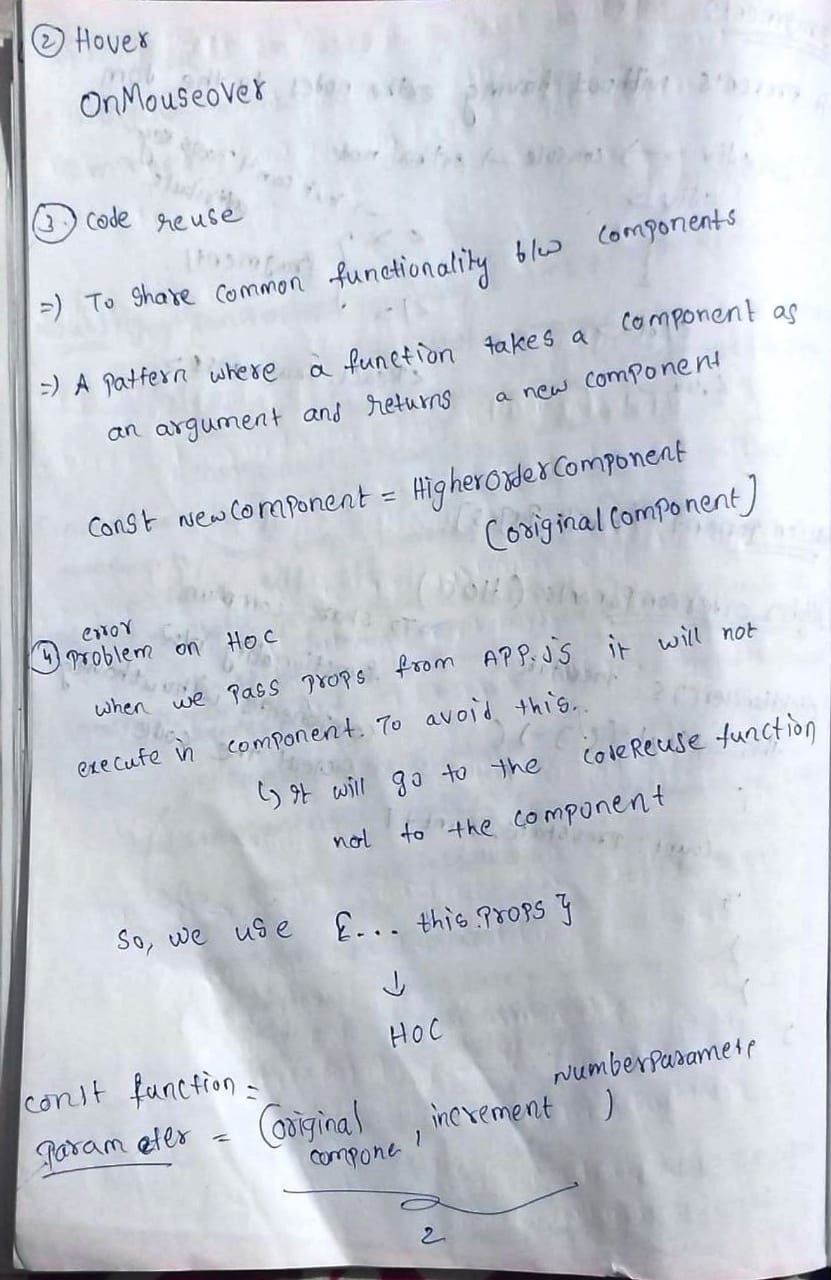 ② Hover
OnMouseover
③ code reuse
=) To share common functionality b/w components
=) A pattern where a function takes a component as
an argument and returns a new component
Const NewComponent = HigherOrderComponent
(original Component)
error
④ Problem on HOC
when we pass props from APP.js it will not
execute in component. To avoid this.
↳ It will go to the codeReuse function
not to the component
So, we use {... this.props}
↓
HOC
const function =
NumberParamete
Parameter = (original , increment )
compone
2